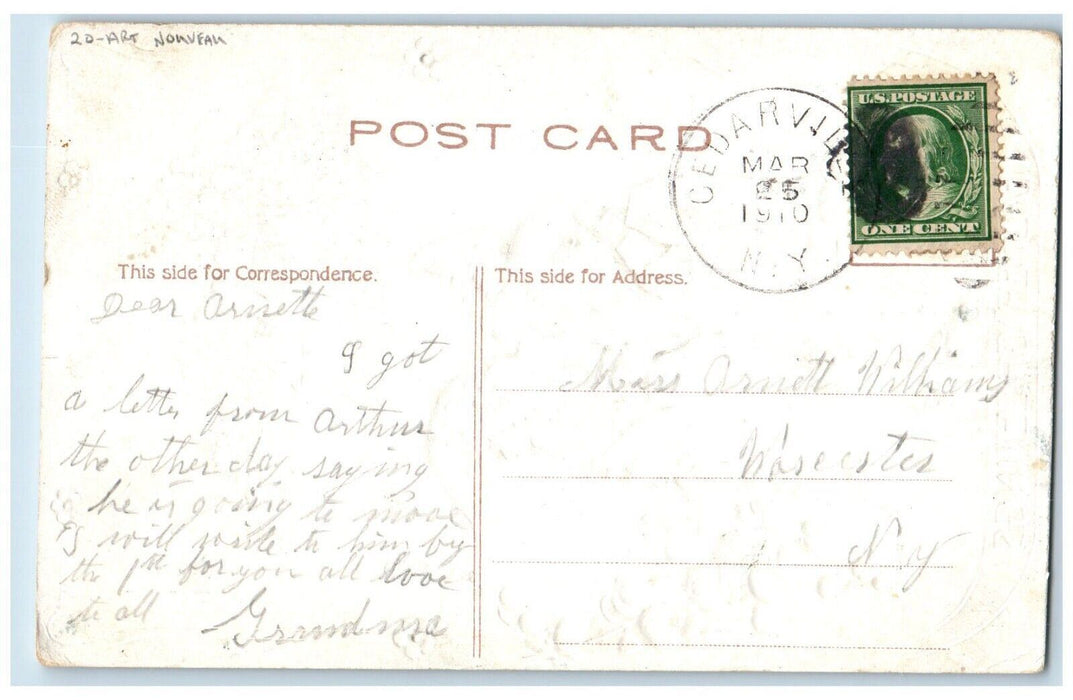 20-ART NOUVEAU
POST CARD
CEDARVILLE
MAR
25
1910
N.Y.
U.S. POSTAGE
ONE CENT
This side for Correspondence.
This side for Address.
Dear Arnette
I got
a letter from Arthur
the other day saying
he is going to move
I will write to him by
the 1st for you all love
to all
Grandma
Miss Arnett Williams
Worcester
N.Y